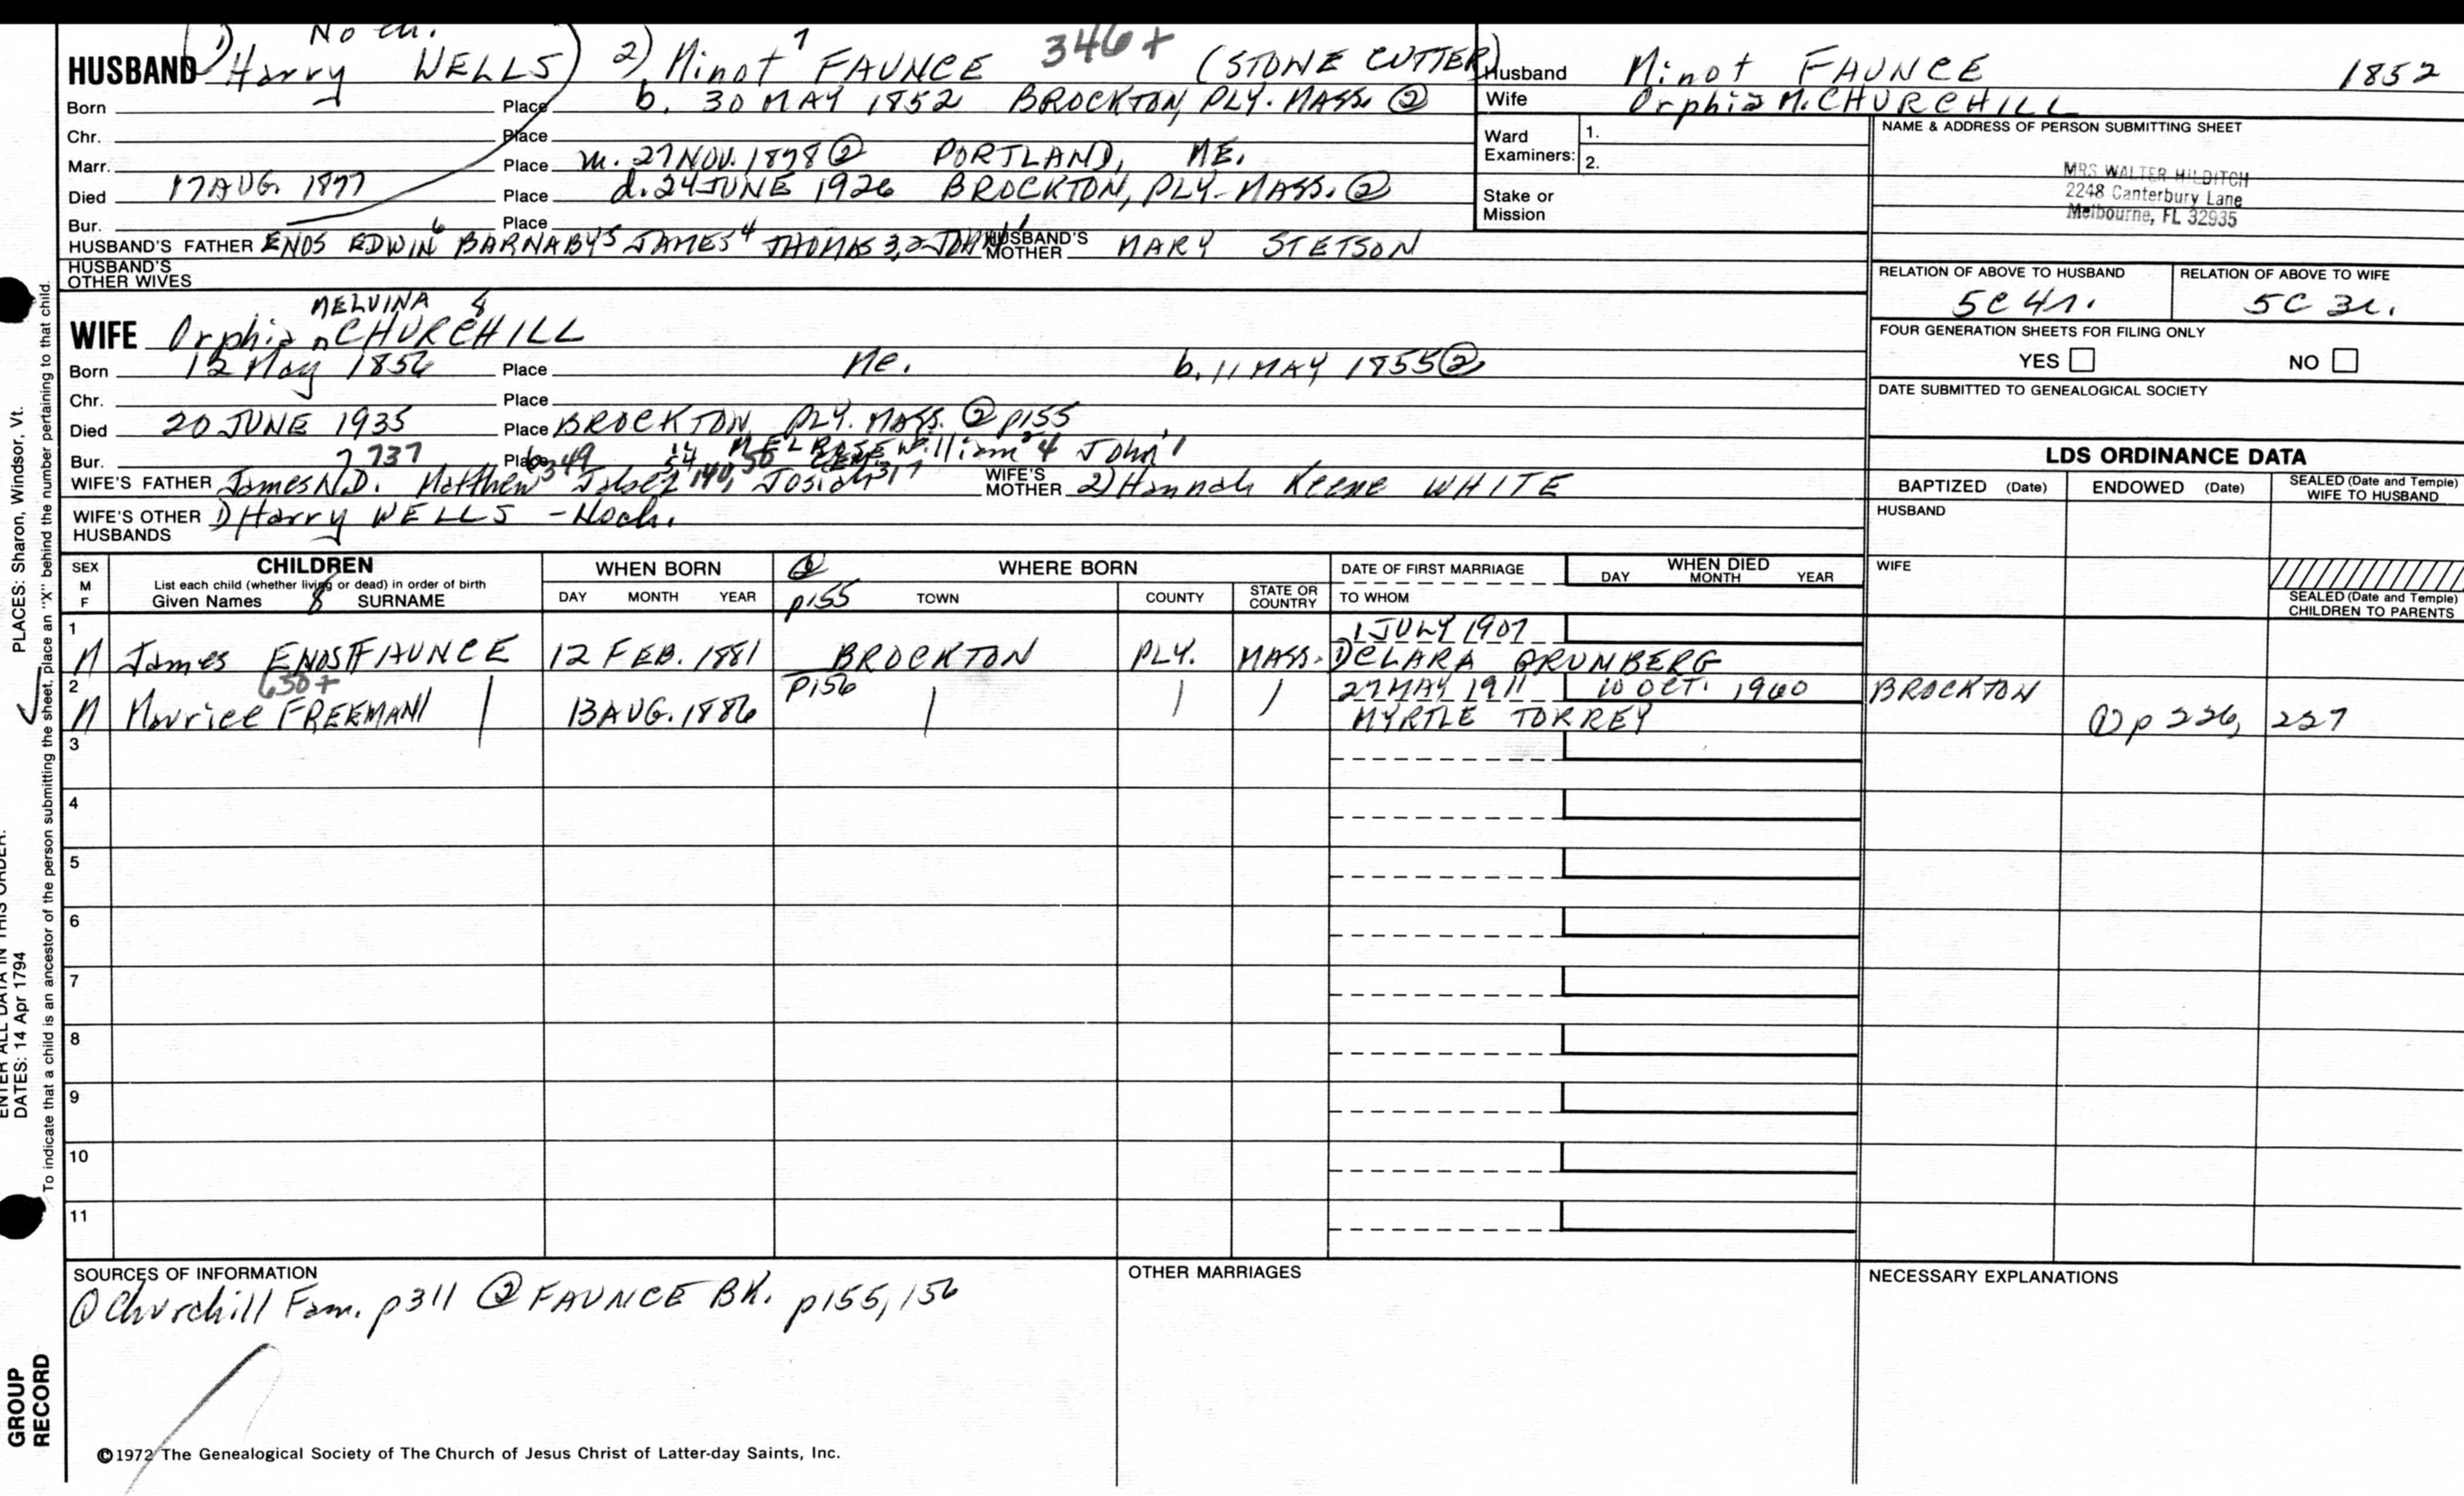 1) No ch.
HUSBAND Harry WELLS) 2) Minot 7 FAUNCE 346+ (STONE CUTTER)
Born Place b. 30 MAY 1852 BROCKTON, PLY. MASS. ②
Chr. Place
Marr. Place m. 27 NOV. 1878 ② PORTLAND, ME.
Died 17 AUG. 1877 Place d. 24 JUNE 1926 BROCKTON, PLY. MASS. ②
Bur. Place
HUSBAND'S FATHER ENOS EDWIN 6 BARNABY 5 JAMES 4 THOMAS 3,2 JOHN 1 HUSBAND'S MOTHER MARY STETSON
HUSBAND'S OTHER WIVES
Husband Minot FAUNCE 1852
Wife Orphia M. CHURCHILL
Ward Examiners: 1.
2.
Stake or Mission
NAME & ADDRESS OF PERSON SUBMITTING SHEET
MRS WALTER HILDITCH
2248 Canterbury Lane
Melbourne, FL 32935
RELATION OF ABOVE TO HUSBAND RELATION OF ABOVE TO WIFE
5C 4r. 5C 3r.
FOUR GENERATION SHEETS FOR FILING ONLY
YES NO
DATE SUBMITTED TO GENEALOGICAL SOCIETY
MELVINA 8
WIFE Orphia CHURCHILL
Born 12 May 1856 Place Me. b. 11 MAY 1855 ②
Chr. Place
Died 20 JUNE 1935 Place BROCKTON PLY. MASS. ② p155
Bur. Place MELROSE CEM.
7 737 6 349 54 50 William 4 John 1
WIFE'S FATHER James N.D. Matthew Jabez 140, Josiah 317 WIFE'S MOTHER 2) Hannah Keene WHITE
WIFE'S OTHER HUSBANDS 1) Harry WELLS - No ch.
LDS ORDINANCE DATA
BAPTIZED (Date) ENDOWED (Date) SEALED (Date and Temple) WIFE TO HUSBAND
HUSBAND
WIFE
SEALED (Date and Temple) CHILDREN TO PARENTS
SEX M F CHILDREN List each child (whether living or dead) in order of birth Given Names 8 SURNAME
WHEN BORN DAY MONTH YEAR
② p155 WHERE BORN TOWN COUNTY STATE OR COUNTRY
DATE OF FIRST MARRIAGE TO WHOM
WHEN DIED DAY MONTH YEAR
1 1 JULY 1907
M James ENOS FAUNCE 12 FEB. 1881 BROCKTON PLY. MASS. 1) CLARA GRUMBERG
2 650+ P156 27 MAY 1911 10 OCT. 1960 BROCKTON
M Maurice FREEMAN 13 AUG. 1886 MYRTLE TORREY ① p 226, 227
3
4
5
6
7
8
9
10
11
SOURCES OF INFORMATION
① Churchill Fam. p311 ② FAUNCE BK. p155, 156
OTHER MARRIAGES
NECESSARY EXPLANATIONS
©1972 The Genealogical Society of The Church of Jesus Christ of Latter-day Saints, Inc.
GROUP RECORD
ENTER ALL DATA IN THIS ORDER:
DATES: 14 Apr 1794 PLACES: Sharon, Windsor, Vt.
To indicate that a child is an ancestor of the person submitting the sheet, place an "X" behind the number pertaining to that child.